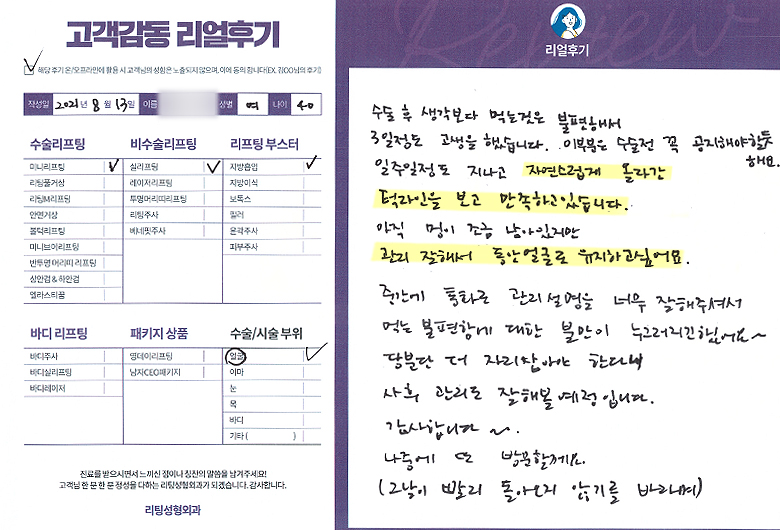 고객감동 리얼후기
해당 후기 온/오프라인에 활용 시 고객님의 성함은 노출되지 않으며, 이에 동의 합니다(EX. 김OO님의 후기)
작성일 2021년 8월 13일 이름 성별 여 나이 40
수술리프팅
미니리프팅
리팅풀거상
리팅M리프팅
안면거상
볼턱리프팅
미니브이리프팅
반투명 머리띠 리프팅
상안검 & 하안검
엘라스티꿈
비수술리프팅
실리프팅
레이저리프팅
투명머리띠리프팅
리팅주사
베네핏주사
리프팅 부스터
지방흡입
지방이식
보톡스
필러
윤곽주사
피부주사
바디 리프팅
바디주사
바디실리프팅
바디레이저
패키지 상품
영데이리프팅
남자CEO패키지
수술/시술 부위
얼굴
이마
눈
목
바디
기타 ( )
진료를 받으시면서 느끼신 점이나 칭찬의 말씀을 남겨주세요!
고객님 한 분 한 분 정성을 다하는 리팅성형외과가 되겠습니다. 감사합니다.
리팅성형외과
Review
리얼후기
수술 후 생각보다 먹는것은 불편해서
3일정도 고생을 했습니다. 이부분은 수술전 꼭 공지해야할듯
해요.
일주일정도 지나고 자연스럽게 올라간
턱라인을 보고 만족하고있습니다.
아직 멍이 조금 남아있지만
관리 잘해서 동안얼굴로 유지하고싶어요.
중간에 통화로 관리설명을 너무 잘해주셔서
먹는 불편함에 대한 불만이 누그러지긴했어요~
당분간 더 자리잡아야 한다니
사후 관리도 잘해볼예정입니다.
감사합니다~.
나중에 또 방문할께요.
(그날이 빨리 돌아오지 않기를 바라며)